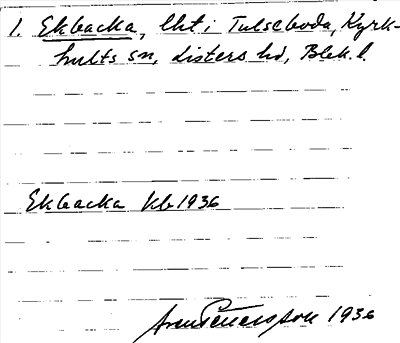 1. Ekbacka, lht i Tulseboda, Kyrk-
hults sn, Listers hd, Blek. l.
Ekbacka kb 1936
1936